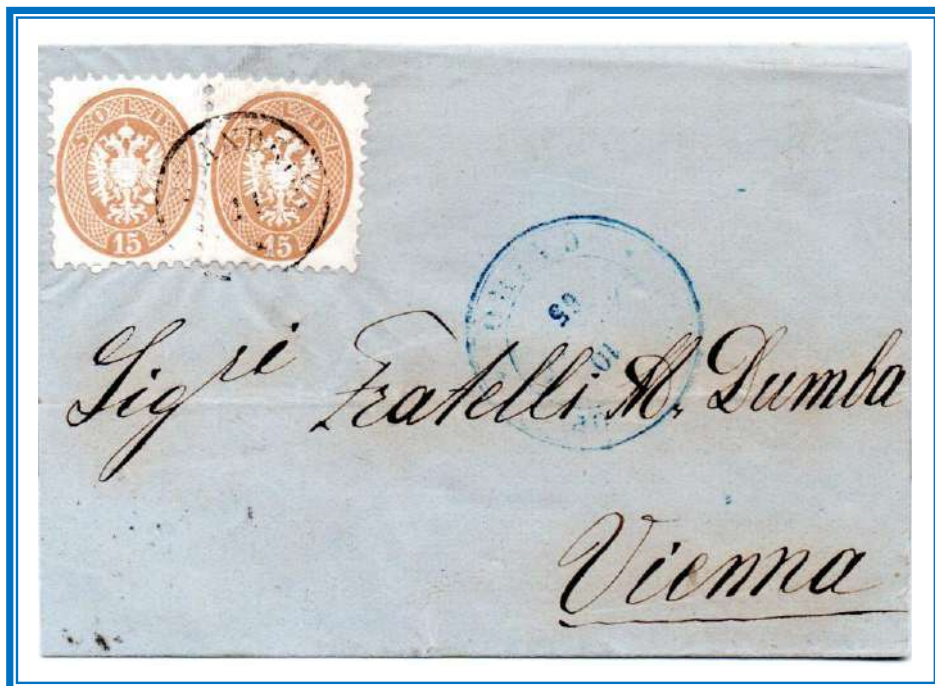 SOLDI SOLDI
15 15
65
10
Sigri Fratelli M. Dumba
Vienna